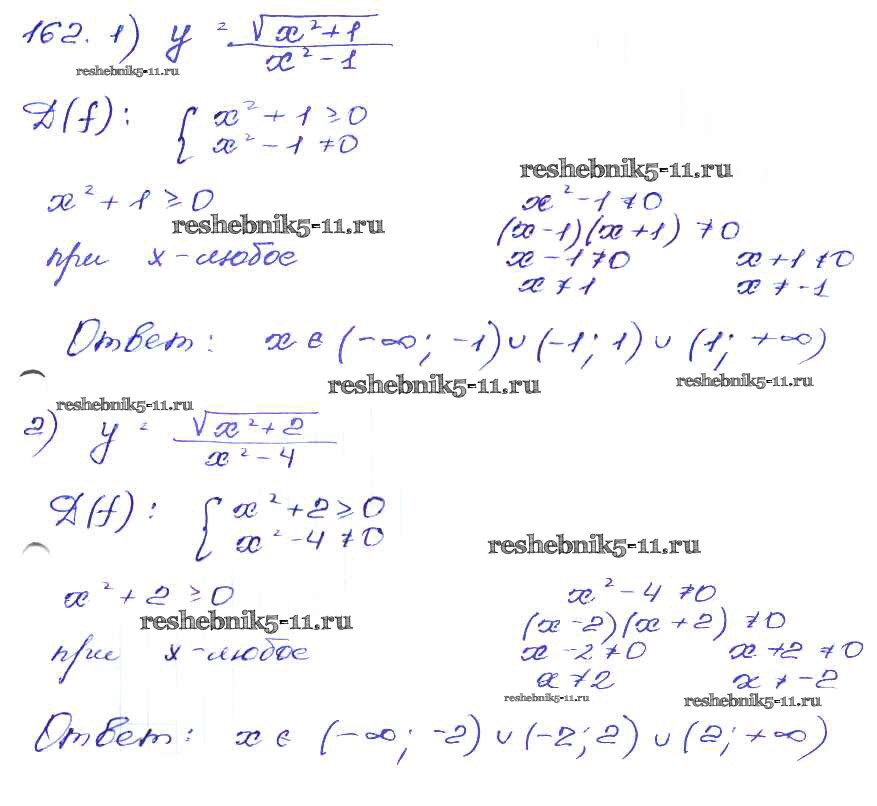 162. 1) y = √(x²+1) / (x²-1)
reshebnik5-11.ru
D(f): { x²+1≥0
x²-1≠0
reshebnik5-11.ru
x²+1≥0 x²-1≠0
reshebnik5-11.ru (x-1)(x+1)≠0
при x-любое x-1≠0 x+1≠0
x≠1 x≠-1
Ответ: x∈(-∞; -1)∪(-1; 1)∪(1; +∞)
reshebnik5-11.ru reshebnik5-11.ru
reshebnik5-11.ru
2) y = √(x²+2) / (x²-4)
D(f): { x²+2≥0
x²-4≠0
reshebnik5-11.ru
x²+2≥0 x²-4≠0
reshebnik5-11.ru (x-2)(x+2)≠0
при x-любое x-2≠0 x+2≠0
x≠2 x≠-2
reshebnik5-11.ru reshebnik5-11.ru
Ответ: x∈(-∞; -2)∪(-2; 2)∪(2; +∞)